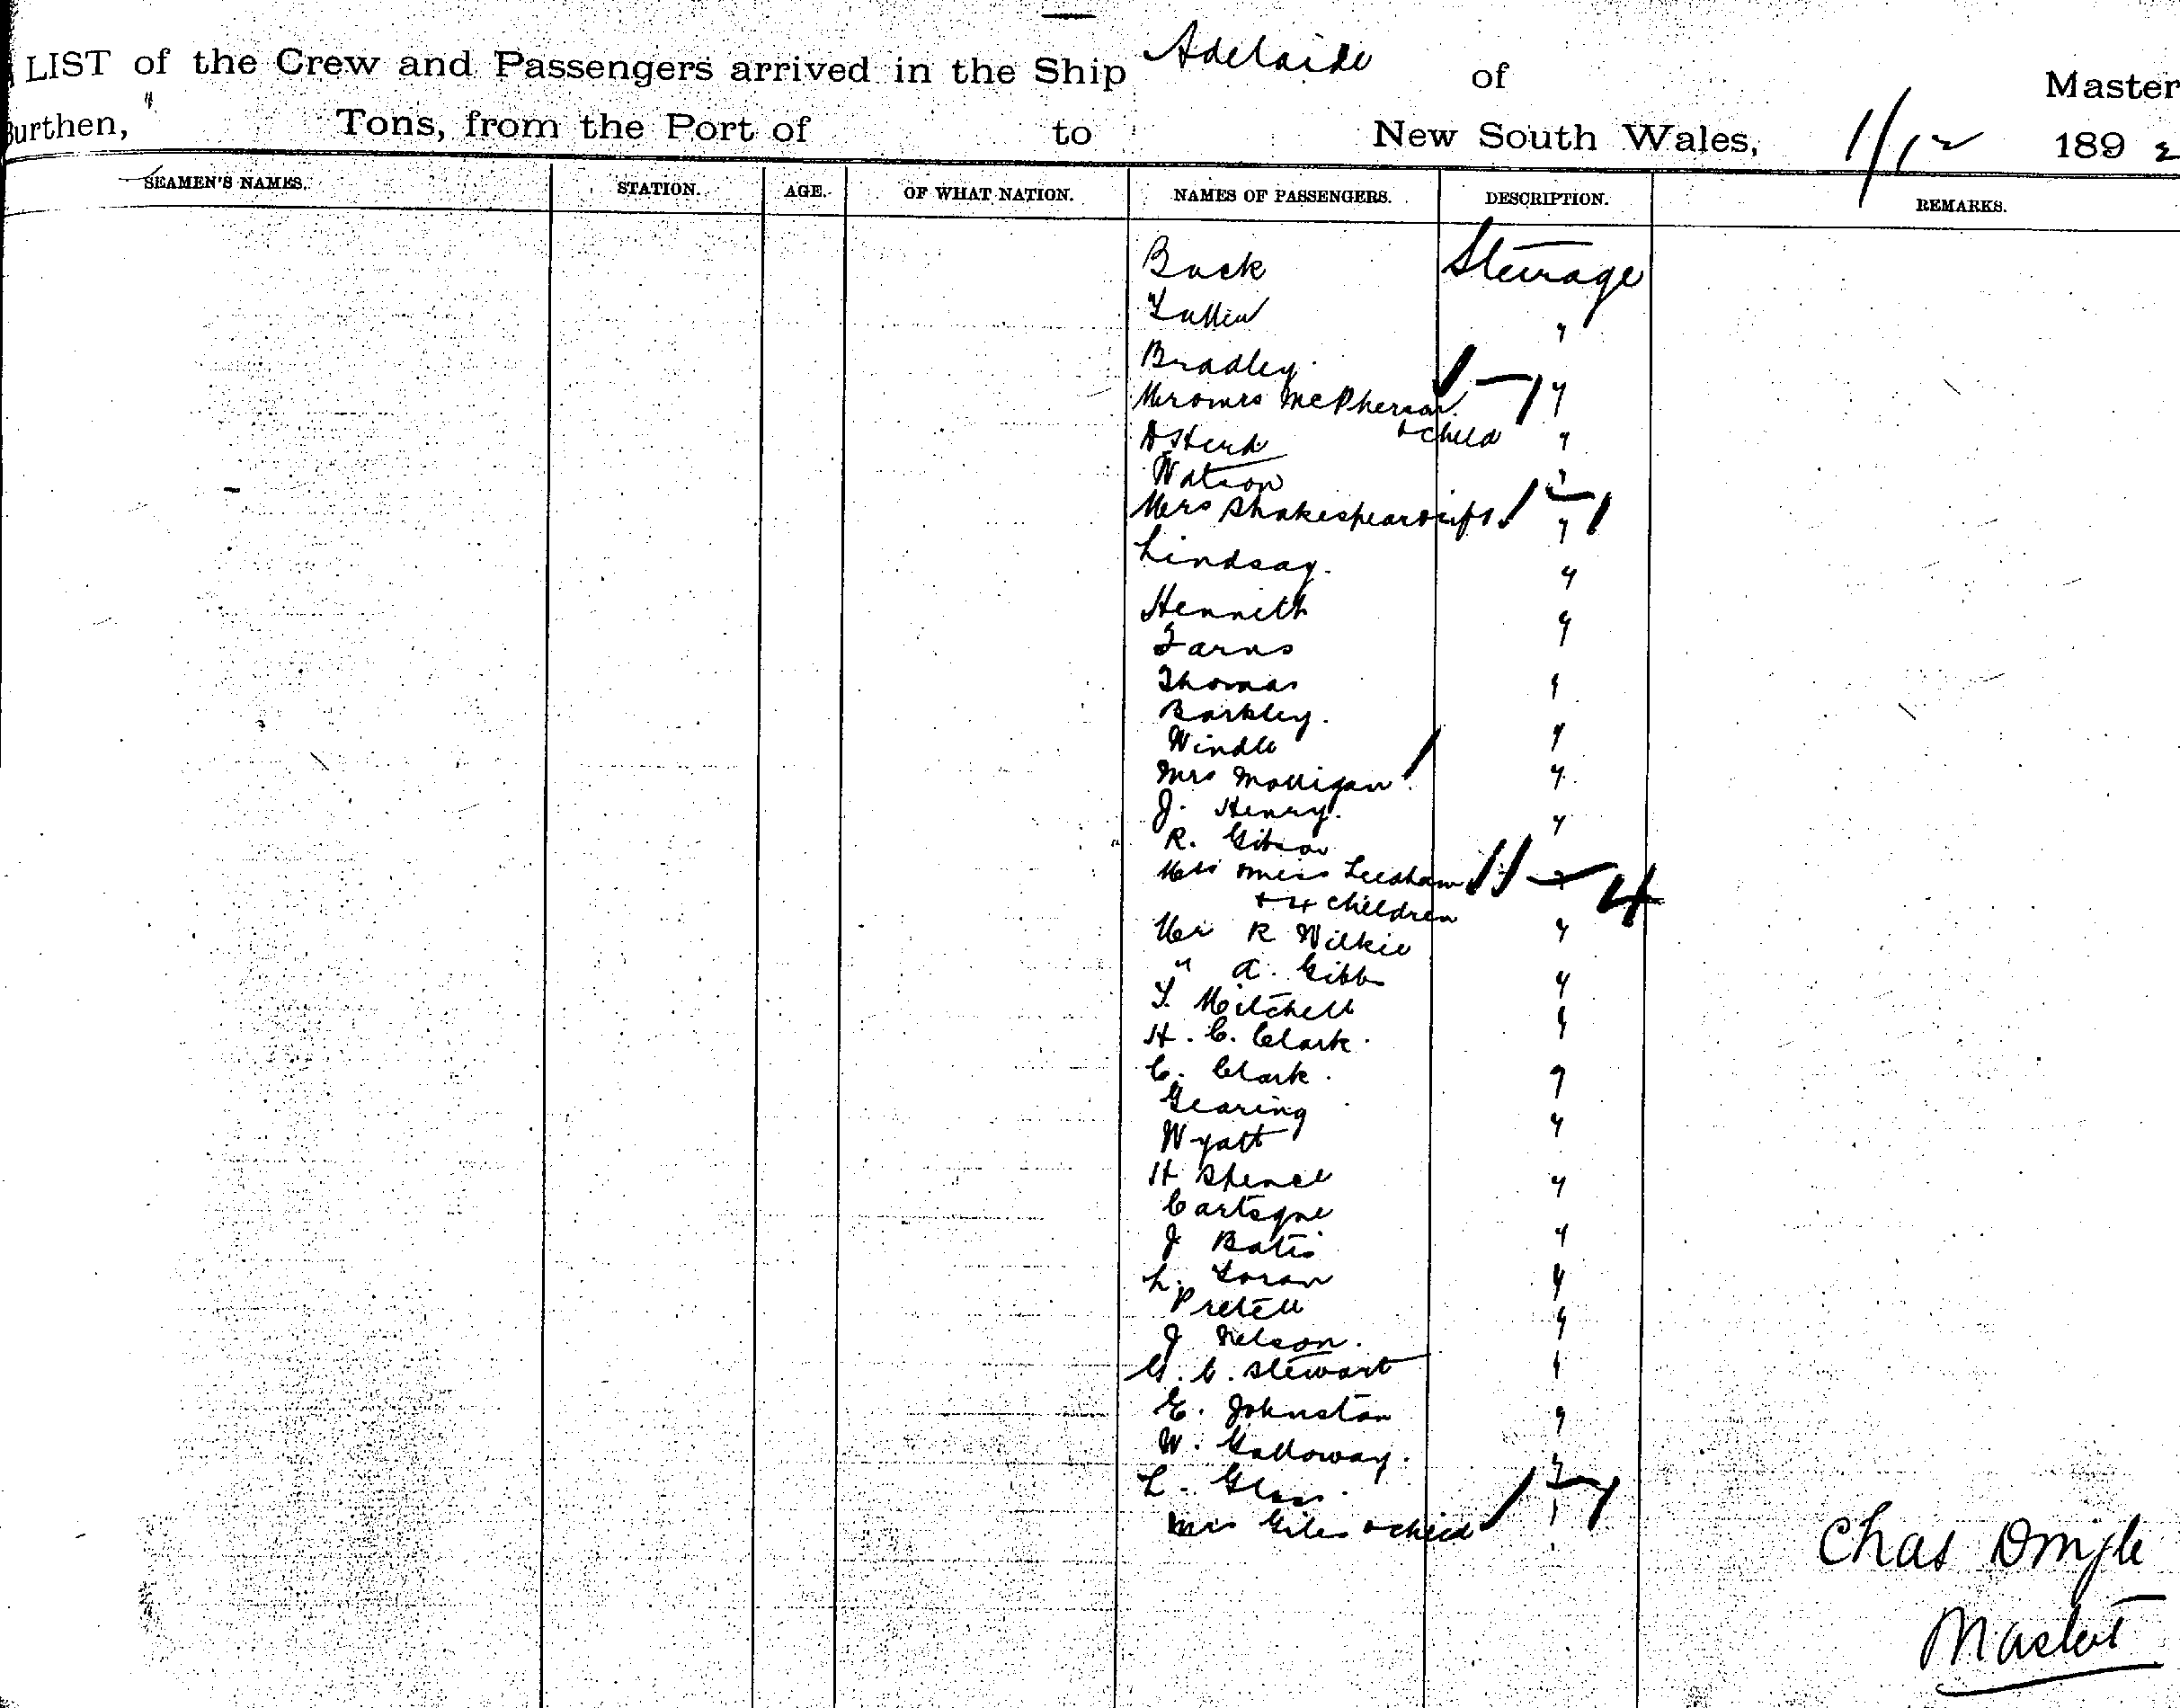 LIST of the Crew and Passengers arrived in the Ship Adelaide of Master
Burthen, " Tons, from the Port of to New South Wales, 1/12 1892
SEAMEN'S NAMES. STATION. AGE. OF WHAT NATION. NAMES OF PASSENGERS. DESCRIPTION. REMARKS.
Buck Steerage
"
Bradley "
Mr & Mrs McPherson 1
& child "
Watson "
Mrs Shakespear & inft 1 "
Lindsay "
Henneth "
Farns
Thomas "
Barkley
Windle "
Mrs Molligan "
J. Henry "
R. Gibson
Mrs & Miss Leesham 4
+ 4 children
Mr R Wilkie "
" A. Gibb "
T. Mitchell "
H. C. Clark
C. Clark "
Gearing "
Wyatt
H Spence "
J Bates "
L. Foran "
J Nelson "
G. C. Stewart "
E. Johnston "
W. Galloway "
L. Glass
Mrs Giles & child 1
Chas
Master